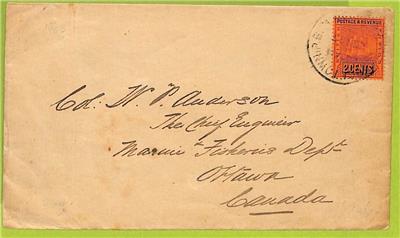 POSTAGE & REVENUE
2 CENTS
Col: W. P. Anderson
The Chief Engineer
Marine & Fisheries Dept
Ottawa
Canada